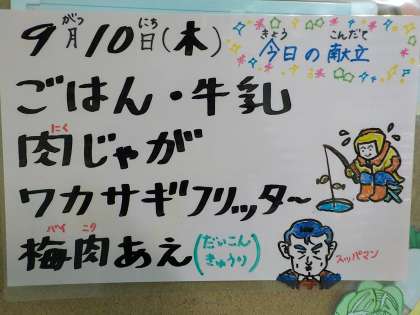 9月10日(木)
がつ にち
今日の献立
きょう こんだて
ごはん・牛乳
肉じゃが
にく
ワカサギフリッター
梅肉あえ(だいこん きゅうり)
バイ ニク
スッパマン